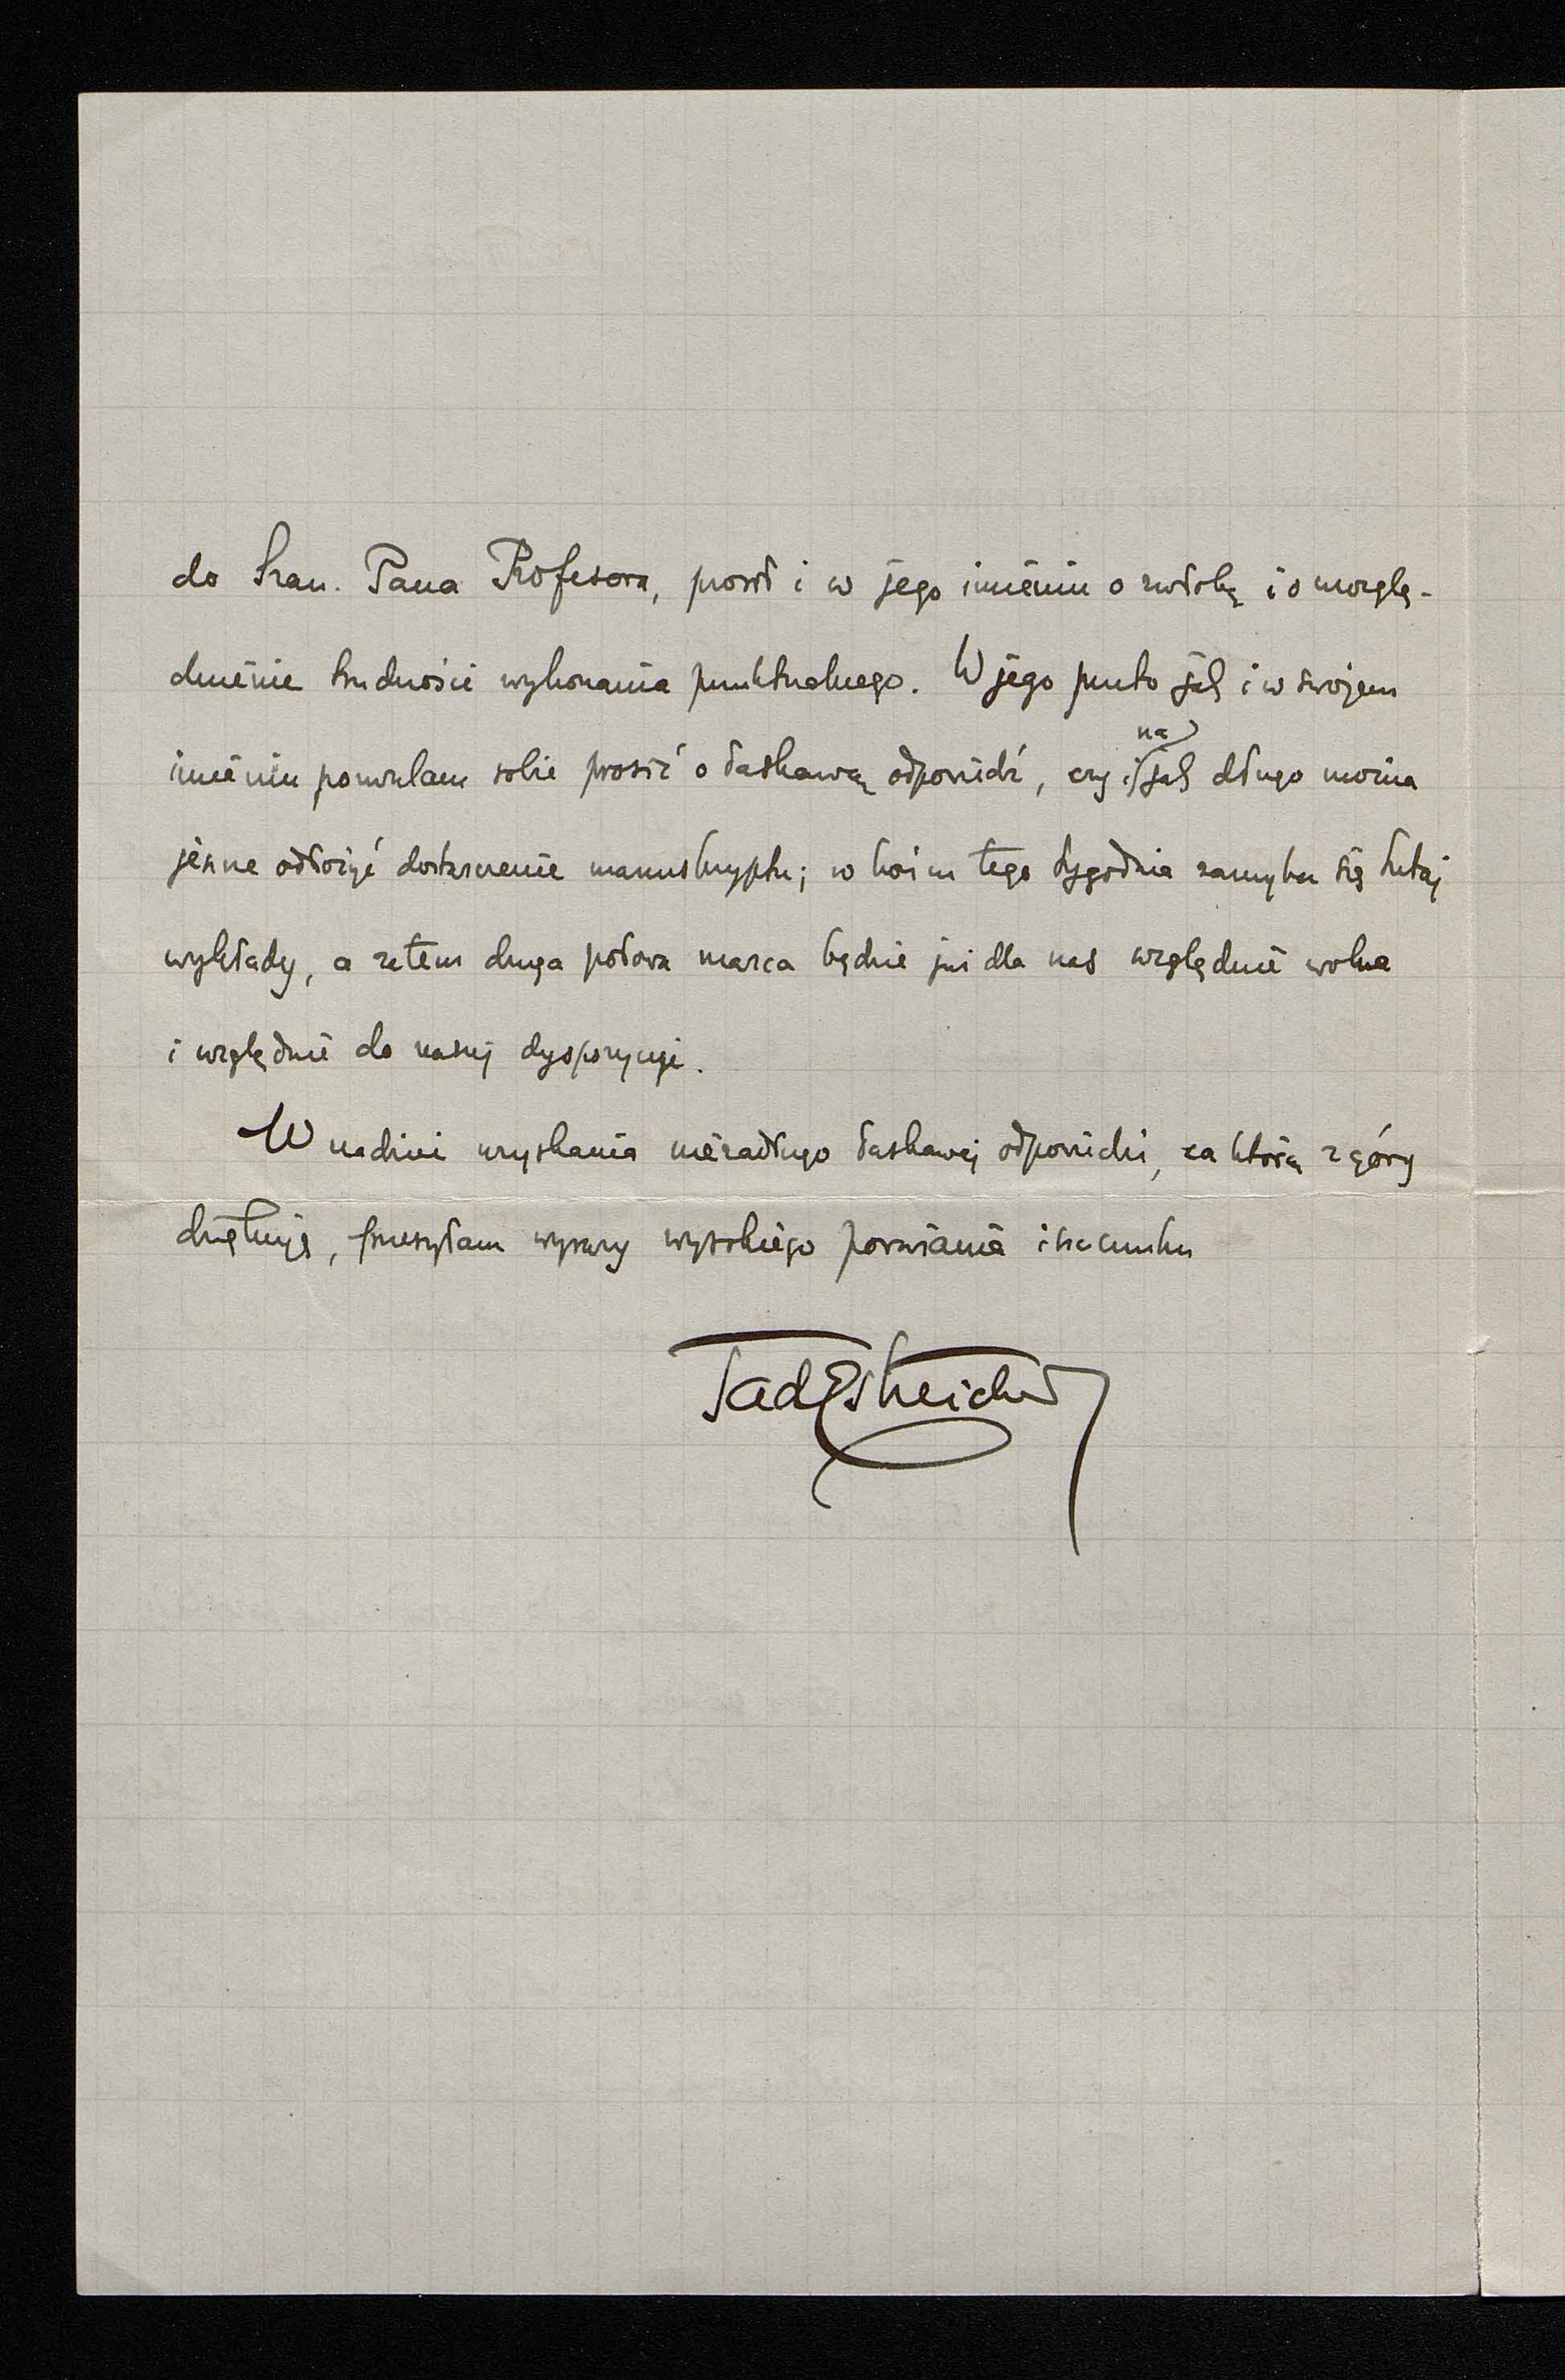 do Szan. Pana Profesora, prosił i w jego imieniu o zwłokę i o uwzglę-
dnienie trudności wykonania punktualnego. W jego przeto jak i w swojem
imieniu pozwalam sobie prosić o łaskawą odpowiedź, czy i na jak długo można
jeszcze odłożyć dostarczenie manuskryptu; w końcu tego tygodnia zamyka się tutaj
wykłady, a zatem druga połowa marca będzie już dla nas względnie wolna
i względnie do naszej dyspozycyi.
W nadziei uzyskania niezadługo łaskawej odpowiedzi, za którą z góry
dziękuję, przesyłam wyrazy wysokiego poważania i szacunku
TadEstreicher